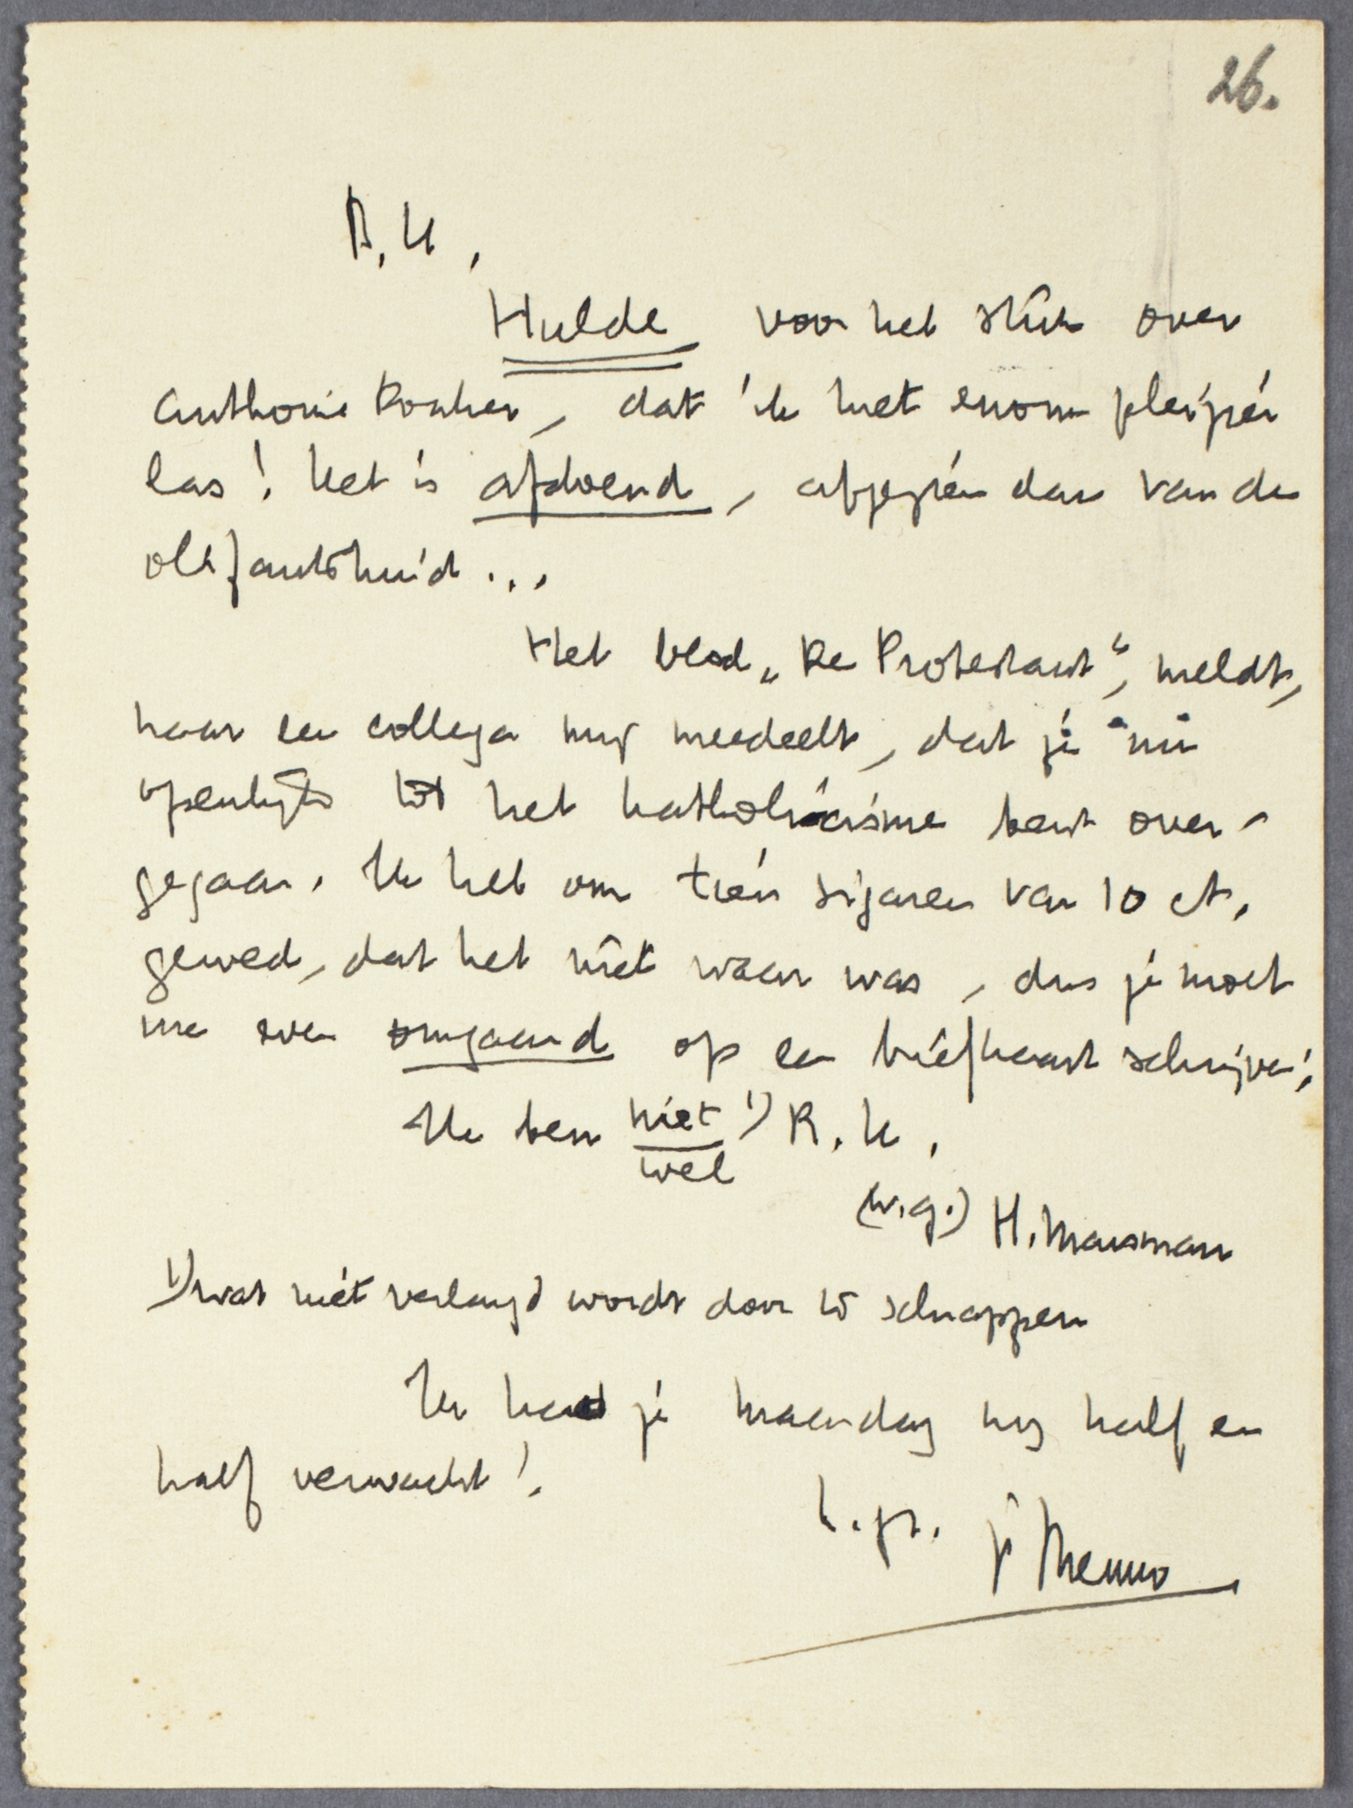 26.
B. H,
Hulde voor het stuk over
Anthonie Donker, dat ik met enorm pleizier
las! Het is afdoend, afgezien dan van de
olifantshuid...
Het blad „De Protestant", meldt,
naar een collega mij meedeelt, dat je nu
openlijk tot het katholicisme bent over-
gegaan. Ik heb om tien sigaren van 10 ct.
gewed, dat het niet waar was, dus je moet
me even omgaand op een briefkaart schrijven:
Ik ben niet 1) R. K.
wel
(w.g.) H. Marsman
1) wat niet verlangd wordt door te schrappen
Ik had je maandag nog half en
half verwacht!
h. gr. je Menno